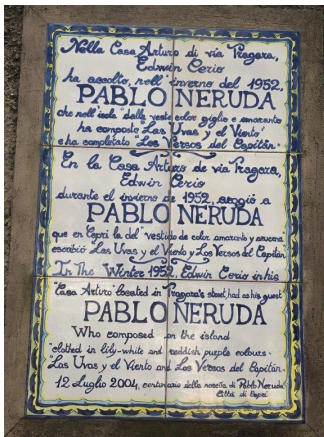 Nella Casa Arturo di via Tragara,
Edwin Cerio
ha accolto, nell'inverno del 1952,
PABLO NERUDA
che nell'isola "dalla veste color giglio e amaranto"
ha composto "Las Uvas y el Viento"
e ha completato "Los Versos del Capitán".
En la Casa Arturo de via Tragara,
Edwin Cerio
durante el invierno de 1952, acogió a
PABLO NERUDA
que en Capri la del "vestido de color amaranto y azucena"
escribió Las Uvas y el Viento y Los Versos del Capitán
In The Winter 1952, Edwin Cerio in his
"Casa Arturo" located in Tragara's street, had as his guest
PABLO NERUDA
Who composed on the island
"clothed in lily-white and reddish purple colours"
"Las Uvas y el Viento and Los Versos del Capitán.
12 Luglio 2004, centenario della nascita di Pablo Neruda
Città di Capri